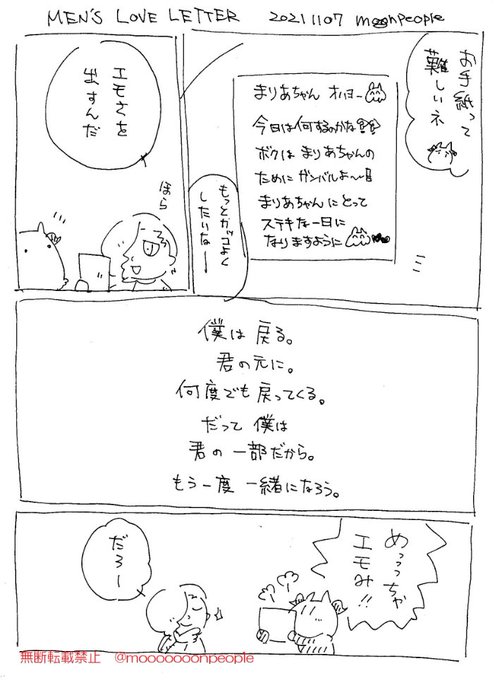 MEN'S LOVE LETTER 20211107 moonpeople
お手紙って
難しいネ
まりあちゃん オハヨー
今日は何するのかな
ボクは まりあちゃんの
ために ガンバルよ〜
まりあちゃんにとって
ステキな一日に
なりますように
もっとカッコよく
したいなー
エモさを
出すんだ
ほら
僕は 戻る。
君の元に。
何度でも 戻ってくる。
だって 僕は
君の 一部だから。
もう一度 一緒になろう。
めっっっちゃ
エモみ!!
だろー
無断転載禁止 @mooooooonpeople